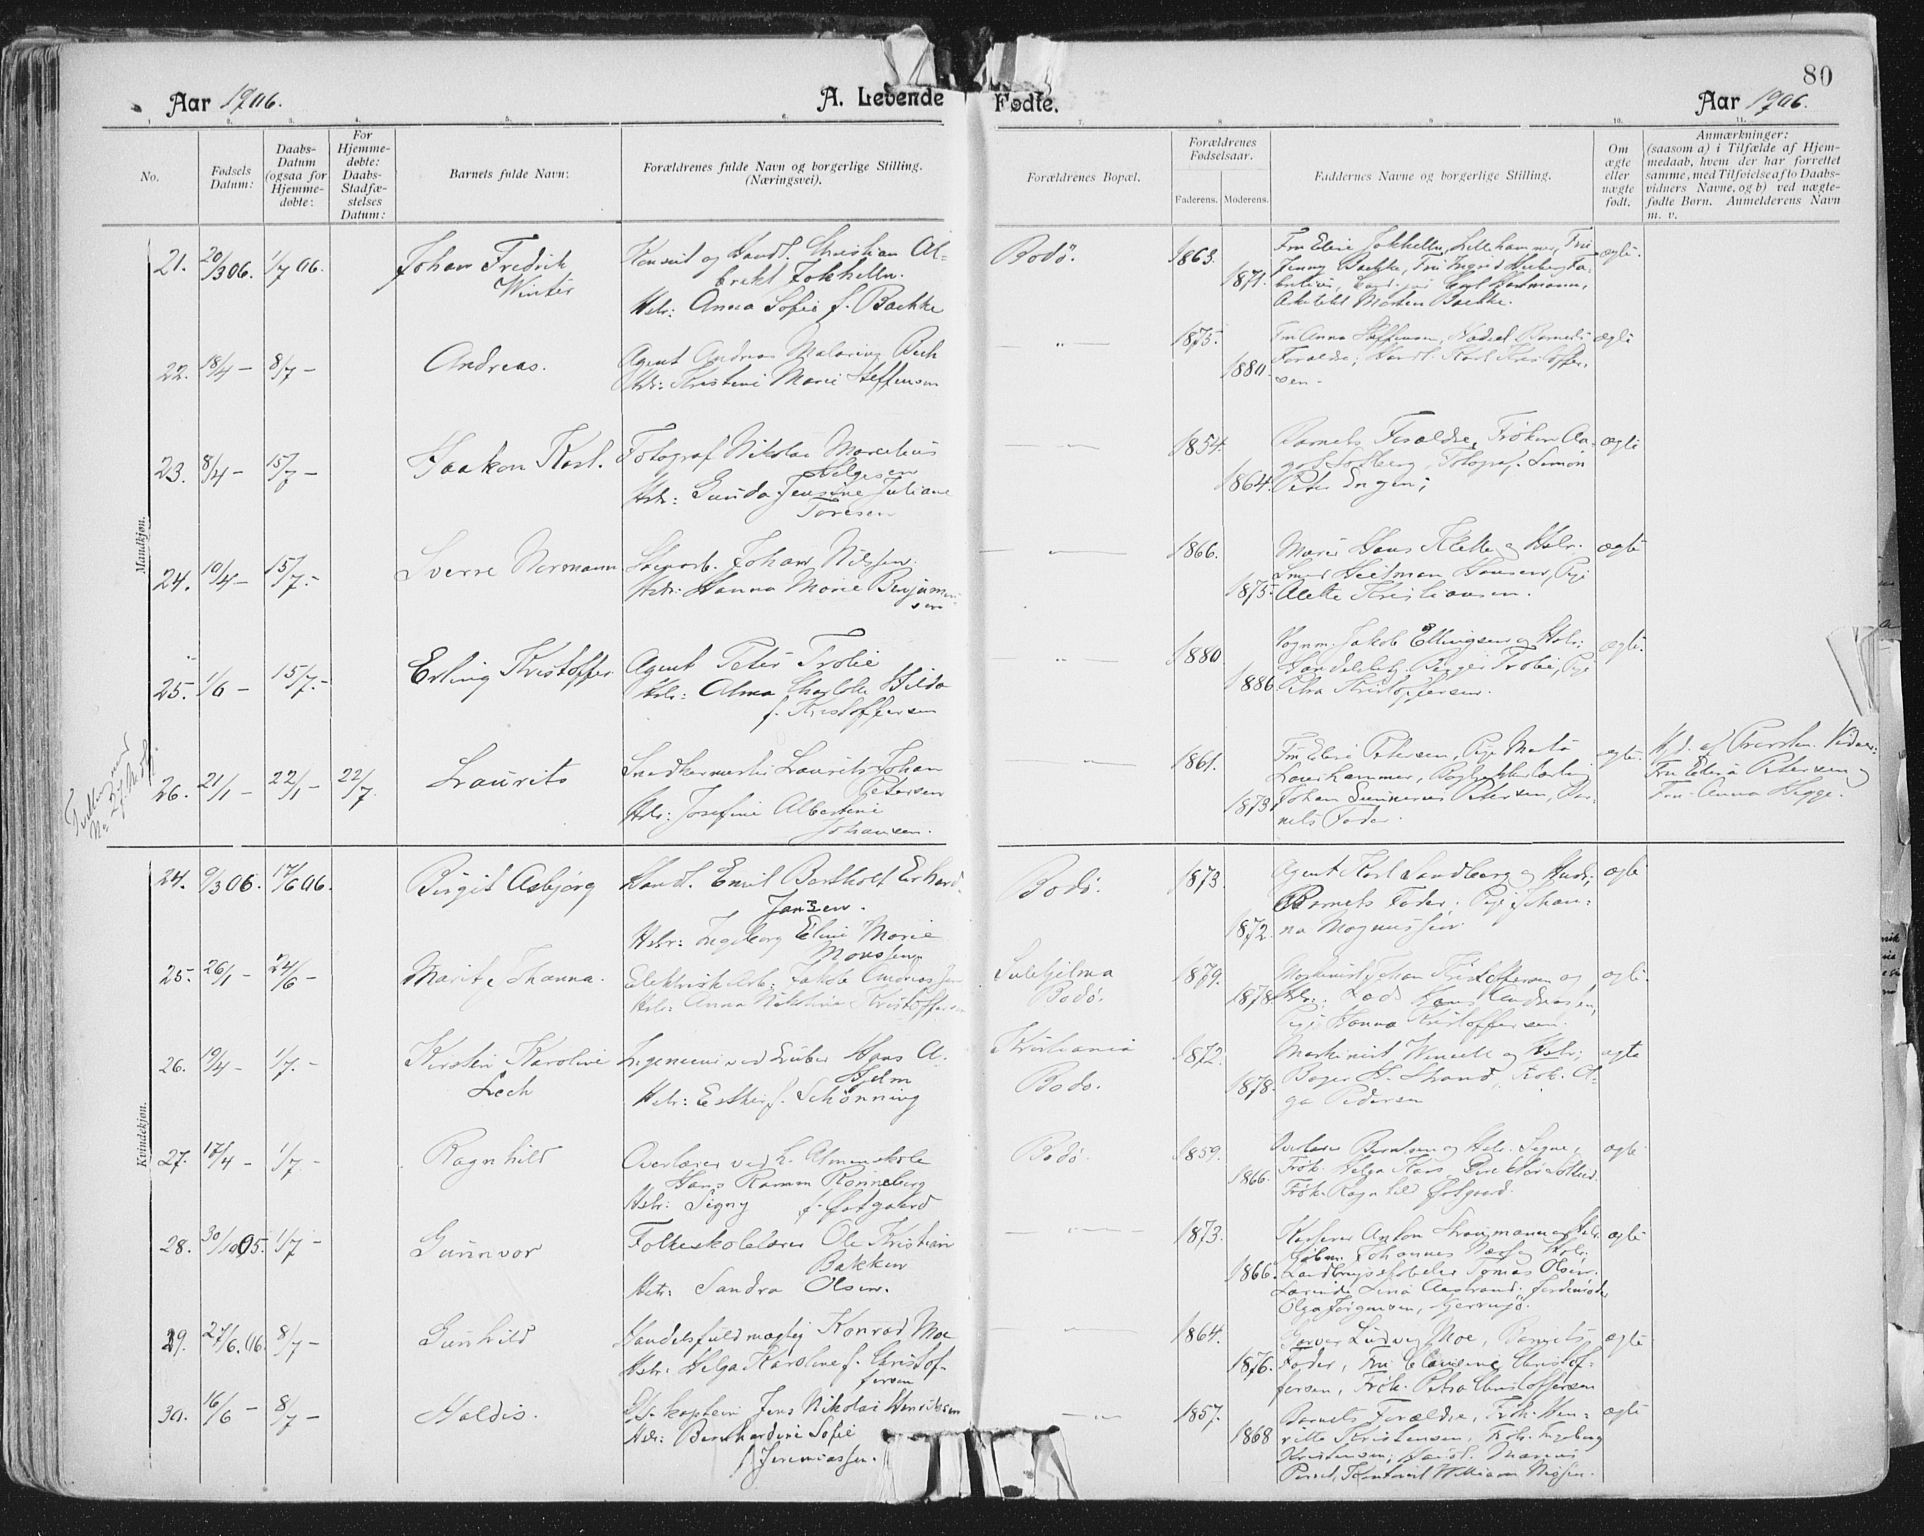 80
Aar 1906.
A. Levende
Fødte.
Aar 1906.
No.
Fødsels Datum:
Daabs-Datum (ogsaa for Hjemme-døbte:
For Hjemme-døbte: Daabs-Stadfæ-stelses Datum:
Barnets fulde Navn:
Forældrenes fulde Navn og borgerlige Stilling. (Næringsvei).
Forældrenes Bopæl.
Forældrenes Fødselsaar.
Faderens. Moderens.
Faddernes Navne og borgerlige Stilling.
Om ægte eller uægte født.
Anmærkninger: (saasom a) i Tilfælde af Hjem-medaab, hvem der har forrettet samme, med Tilføielse af to Daabs-vidners Navne, og b) ved uægte-fødte Børn. Anmelderens Navn m. v.
Mandkjøn.
21. 20/3 06. 1/7 06. Johan Fredrik
Winter
Konsul og Handl. Christian Al-
brekt Jakhelln.
Hstr: Anna Sofie f. Backke
Bodø. 1863. 1871.
Fru Elise Jakhelln, Lillehammer, Fru
Jenny Backke, Frk Ingrid
Carl Bachmann,
Arkitekt Morten Backke.
ægte.
22. 18/4 – 8/7 – Andreas.
Agent Andreas Bech
Hstr: Kristine Marie Steffensen
— „ — 1875. 1880.
Fru Anna Steffensen, Barnets
Foraldre, Handl. Karl Kristoffer-
sen.
ægte
23. 8/4 – 15/7 – Haakon Karl.
Fotograf Nikolai Marcelius
Helgesen
Hstr: Gunda Jensine Juliane
Toresen
1854. 1864.
Barnets Foraldre, Frøken Aa-
got Solberg, Fotograf Simon
Peter Engen;
ægte
24. 10/4 – 15/7. – Sverre Normann
Johan Nilssen.
Hstr: Hanna Marie Benjamin-
sen
— „ — 1866. 1875.
Hans Klette og Hstr.
Smed Heitman Hansen, Pige
Alette Kristiansen.
ægte
25. 1/6 – 15/7. – Erling Kristoffer
Agent Peter Frølie
Hstr: Alma Charlotte Hilda
f. Kristoffersen
— „ — 1880 1886
Vognm. Jakob Ellingsen og Hstr:
Frølie, Pige
Petra Kristoffersen.
ægte.
26. 21/1 – 22/1 – 22/7. Laurits
Snedkermester Laurits Johan
Petersen
Hstr: Josefine Albertine
Johansen.
1861. 1873
Fru Elise Petersen, Pige
Laverhammer,
Johan Petersen, Bar-
nets Fader.
ægte.
Hj. d. af
Fru Elise Petersen og
Fru Anna Hegge.
Kvindekjøn.
24. 9/3 06. 17/6 06. Birgit Asbjørg
Handl. Emil Berthold Erhard
Jansen.
Hstr: Ingeborg Eline Marie
Monssen
Bodø. 1873. 1872.
Agent Karl Sandberg og Hustr;
Barnets Fader. Pige Johan-
na Magnussen
ægte
25. 26/1 – 24/6 – Marit Johanna.
Jakob Andreassen
Hstr: Anna Nikoline Kristoffersen
Sulitjelma
Bodø. 1879. 1878.
Maskinist Johan Kristoffersen og
Hstr; Lods Hans Andreassen,
Pige Hanna Kristoffersen.
ægte.
26. 19/4 – 1/7. – Kirsten Karoline
Lech
Ingeniør ved Hans A.
Hjelm
Hstr: Esther f. Schønning
Kristiania
Bodø. 1872. 1878.
Maskinist og Hstr;
Bager H. Strand, Frøk. A-
ga Pedersen
ægte
27. 17/4 – 1/7 – Ragnhild
Overlærer ved h. Almenskole
Hans Ramm Rønneberg
Hstr: Signy f. Østgaard
Bodø. 1859. 1866.
Overlærer Berntsen og Hstr. Signe,
Frøk. Helga Direktør
Frøk. Ragnhild Østgaard.
ægte
28. 30/10 05. 1/7 – Gunnvor
Folkeskolelærer Ole Kristian
Bakken
Hstr: Sandra Olsen.
1873. 1866.
Kasserer Anton og Hstr
Johannes og Hstr.
Tomas Olsen.
Lærerinde Lina
Olga Jørgensen,
ægte
29. 27/6. 06. 8/7 – Gunhild
Handelsfuldmægtig Konrad Moe
Hstr: Helga Karoline f. Christof-
fersen
1864. 1876.
Garver Ludvig Moe, Barnets
Fader, Fru Christof-
fersen, Frøk. Petra Christoffersen
ægte
30. 16/6 – 8/7 – Haldis.
Jens Nikolai Henriksen
Hstr: Bernhardine Sofie
f. Jeremiassen.
— „ — 1857. 1868
Barnets Foraldre, Frøk. Hen-
riette Kristensen, Frøk. Ingeborg
Kristensen, Handl. Marius
William Nilssen.
ægte